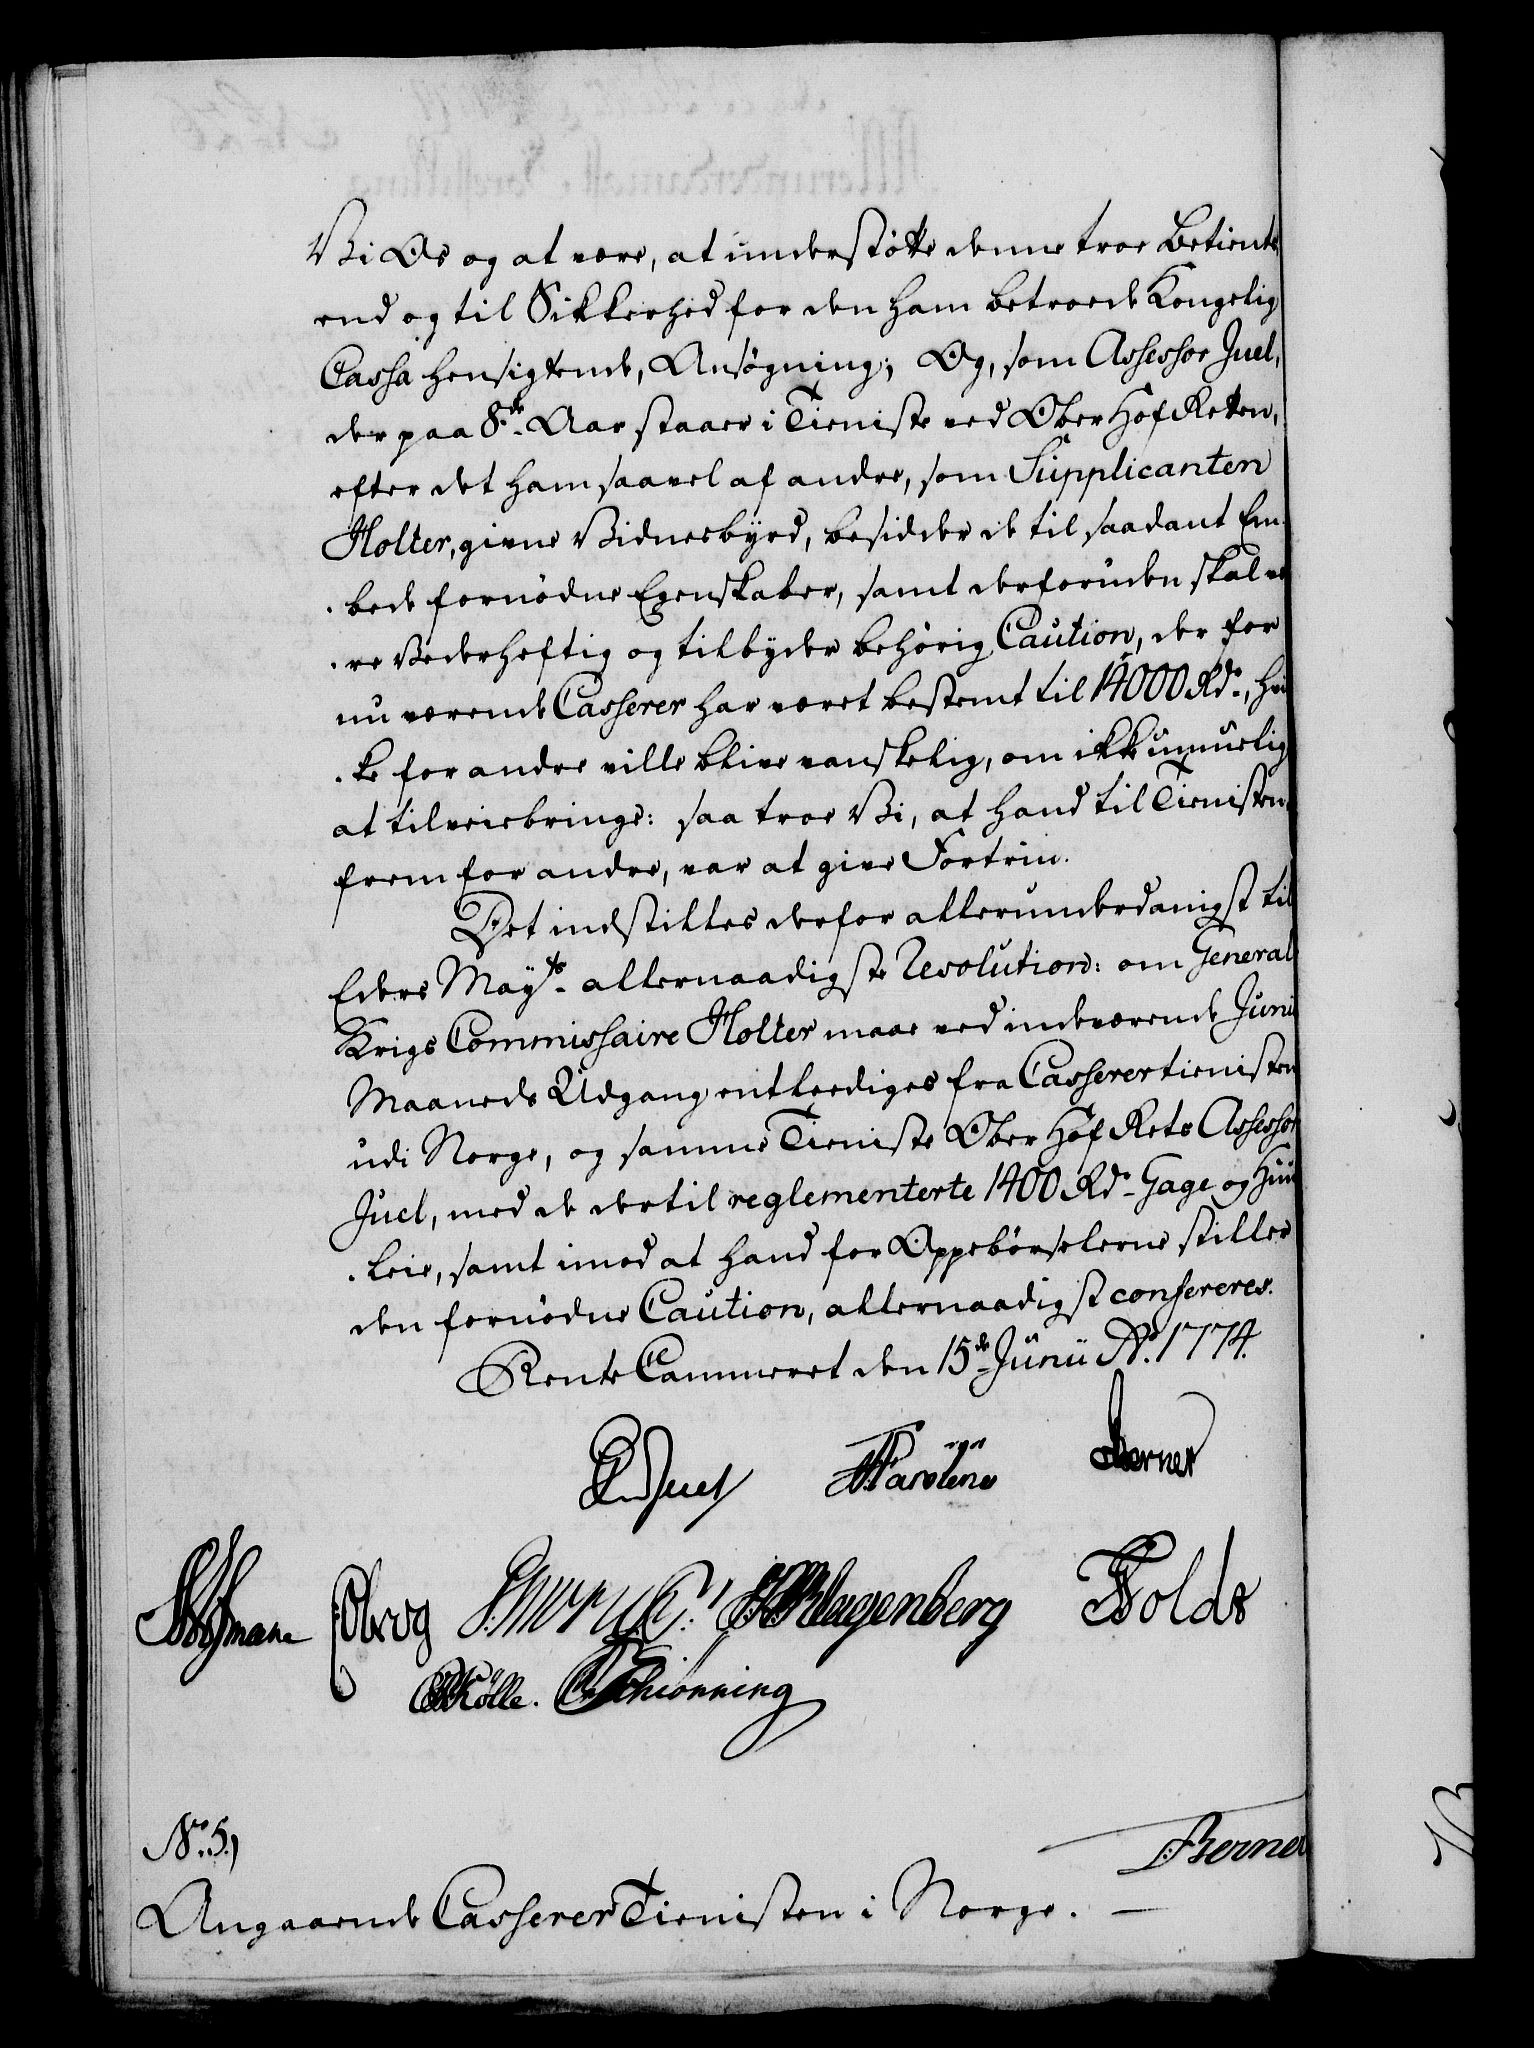 Vi Os og at være, at understøtte denne troe Betients
end og til Sikkerhed for den ham betroede Kongelig
Cassa hensigtende, Ansøgning; Og, som Assessor Juel,
der paa 8de Aar staaer i Tieniste ved Ober Hof Retten,
efter det ham saavel af andre, som Supplicanten
Holter, givne Vidnesbyrd, besidder de til saadant Em-
bede fornødne Egenskaber, samt derforuden skal væ
re Vederheftig og tilbyder behørig Caution, der for
nu værende Casserer har været bestemt til 14000 Rd., hvi
ke for andre ville blive vanskelig, om ikke umuelig
at tilveiebringe: saa troe Vi, at hand til Tienisten
frem for andre, var at give Fortrin.
Det indstilles derfor allerunderdanigst til
Eders Mayts allernaadigste Resolution: om General
Krigs Commissaire Holter maae ved indeværende Junii
Maaneds Udgang entleediges fra Casserertienisten
udi Norge, og samme Tieniste Ober Hof Rets Assessor
Juel, med de dertil reglementerte 1400 Rd. Gage og Huus
leie, samt imod at hand for Oppebørselerne stiller
den fornødne Caution, allernaadigst confereres.
Rente Cammeret den 15de Junii Ao. 1774.
Juel Berner
Hofmann Obrog Klagenberg Holdt
Kølle. Schiønning
No. 5,)
Berner
Angaaende Casserer Tienisten i Norge. —